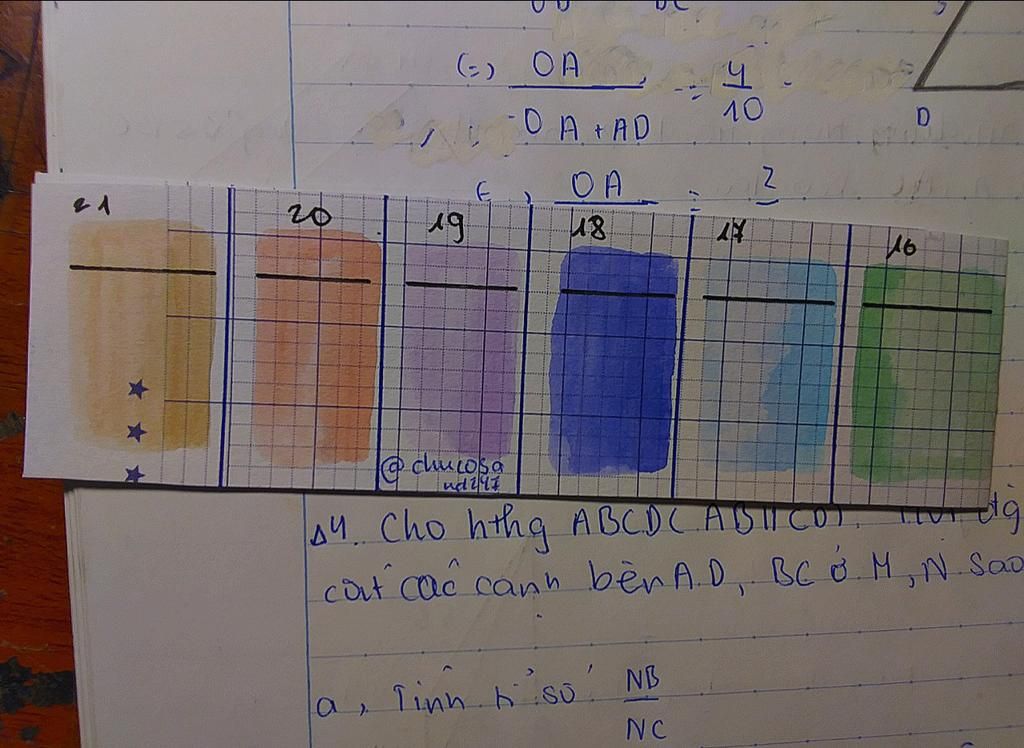 (=) OA = 4
OA + AD 10
OA = 2
D
21 20 19 18 17 16
@chucosa
nd247
Δ4. Cho hthg ABCD( AB//CD).
cắt các cạnh bên A.D, BC ở M, N sao
a, Tính tỉ số NB
NC